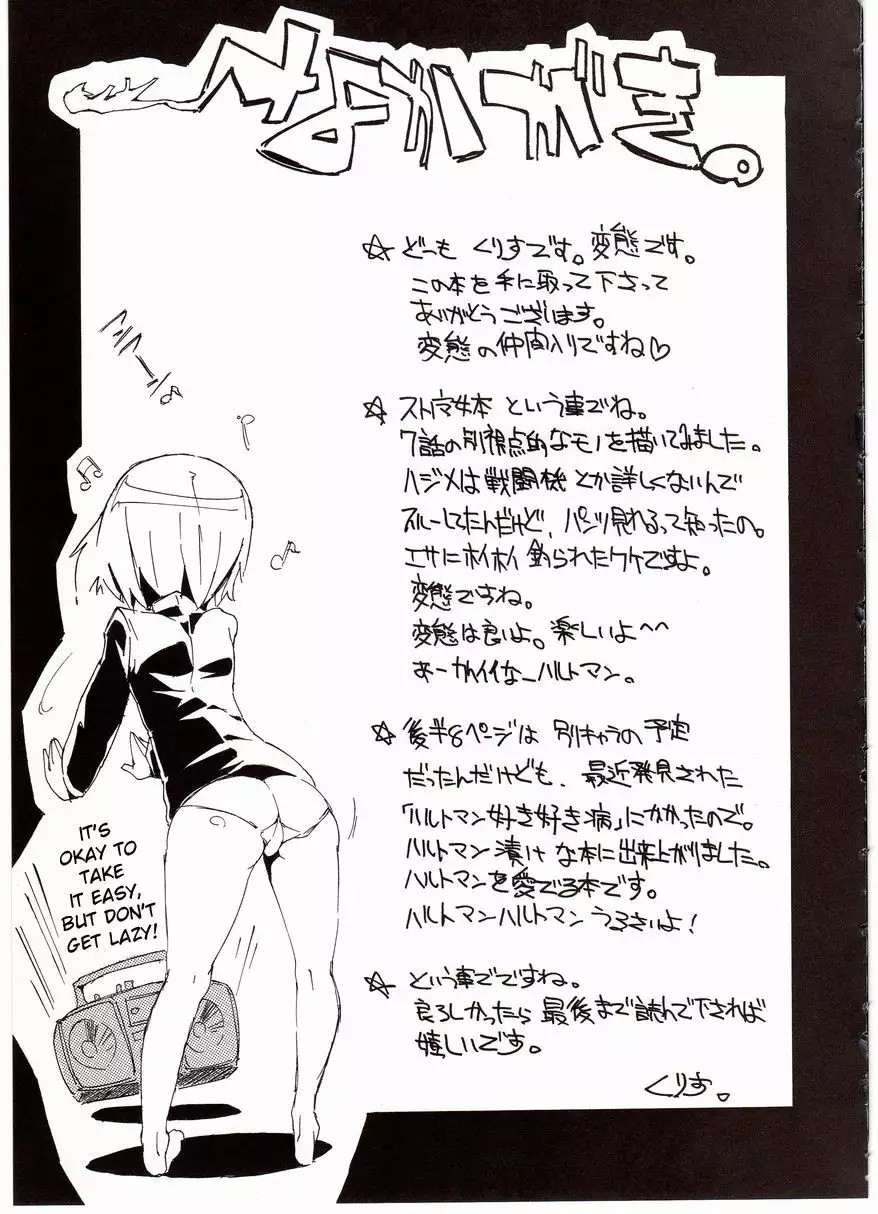 なかがき。
☆ どーも くりすです。変態です。
この本を手に取って下さって
ありがとうございます。
変態の仲間入りですね♡
☆ ストウィ本 という事でね。
7話の別視点的なモノを描いてみました。
ハジメは戦闘機とか詳しくないんで
スルーしてたんだけど、パンツ見れるって知ったの。
エサにホイホイ釣られたワケですよ。
変態ですね。
変態は良いよ。楽しいよ〜〜
あーかわイイなーハルトマン。
☆ 後半8ページは別キャラの予定
だったんだけども、最近発見された
「ハルトマン好き好き病」にかかったので。
ハルトマン漬けな本に出来上がりました。
ハルトマンを愛でる本です。
ハルトマンハルトマンうるさいよ!
☆ という事でですね。
良ろしかったら最後まで読んで下されば
嬉しいです。
くりす。
IT'S
OKAY TO
TAKE
IT EASY,
BUT DON'T
GET LAZY!